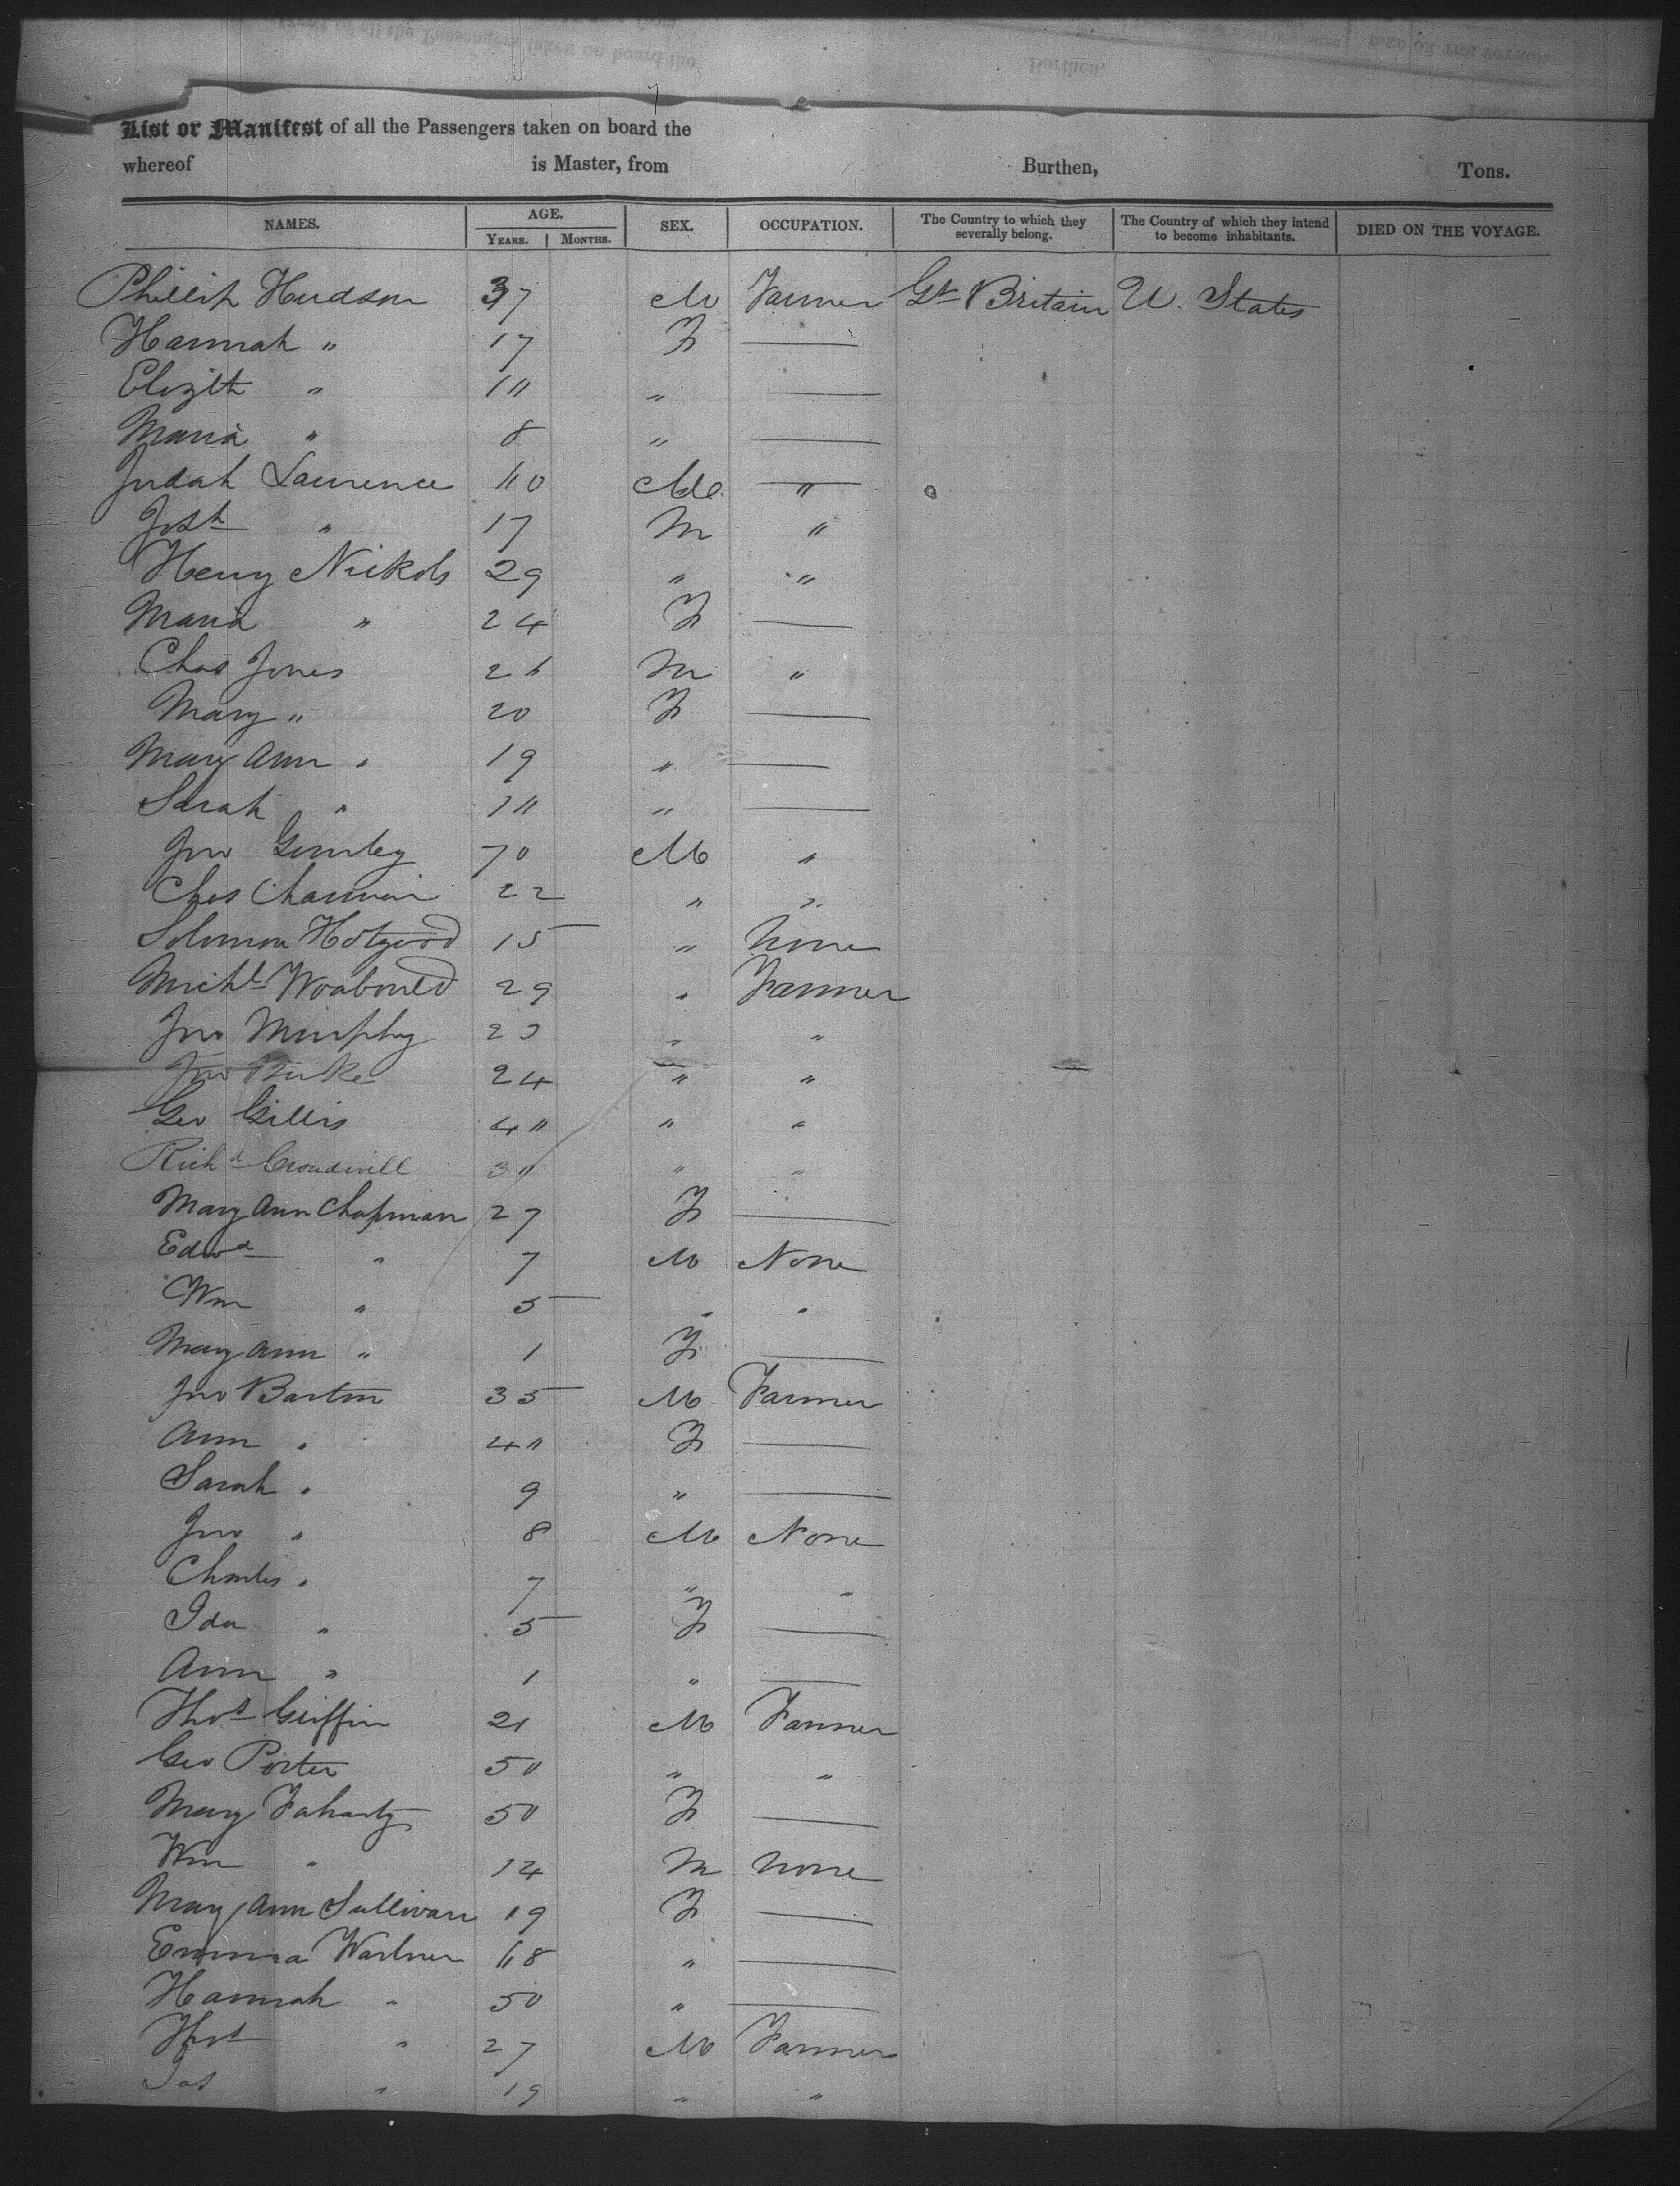 List or Manifest of all the Passengers taken on board the
whereof is Master, from Burthen, Tons.
NAMES. AGE. YEARS. MONTHS. SEX. OCCUPATION. The Country to which they severally belong. The Country of which they intend to become inhabitants. DIED ON THE VOYAGE.
Phillip Hudson 37 M Farmer Gt Britain U. States
Hannah " 17 F —
Elizth " 11 " —
Maria " 8 " —
Judah Laurence 40 — "
Josh " 17 M "
Henry Nickols 29 " "
Maria " 24 F —
Chas Jones 26 M "
Mary " 20 F —
Mary Ann " 19 " —
Sarah " 11 " —
Jno 70 M "
Chas 22 " "
Solomon 15 " None
Michl 29 " Farmer
Jno Murphy 23 " "
Jno Burke 24 " "
Geo Gillis 40 " "
Richd 30 " "
Mary Ann Chapman 27 F —
Edwd " 7 M None
Wm " 5 " "
Mary Ann " 1 F —
Jno Barton 35 M Farmer
Ann " 40 F —
Sarah " 9 " —
Jno " 8 M None
Charles " 7 " "
Ida " 5 F —
Ann " 1 " —
Thos Griffin 21 M Farmer
Geo Porter 50 " "
Mary Faharty 50 F —
Wm " 14 M None
Mary Ann Sullivan 19 F —
Emma 18 " —
Hannah " 50 " —
Thos " 27 M Farmer
Jas " 19 " "